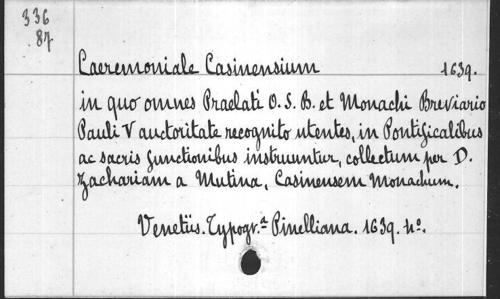 336
.87
Caeremoniale Casinensium 1639.
in quo omnes Praelati O. S. B. et Monachi Breviario
Pauli V auctoritate recognito utentes, in Pontificalibus
ac sacris functionibus instruuntur, collectum per D.
Zachariam a Mutina, Casinensem Monachum.
Venetiis. Typogr.ª Pinelliana. 1639. 4º.